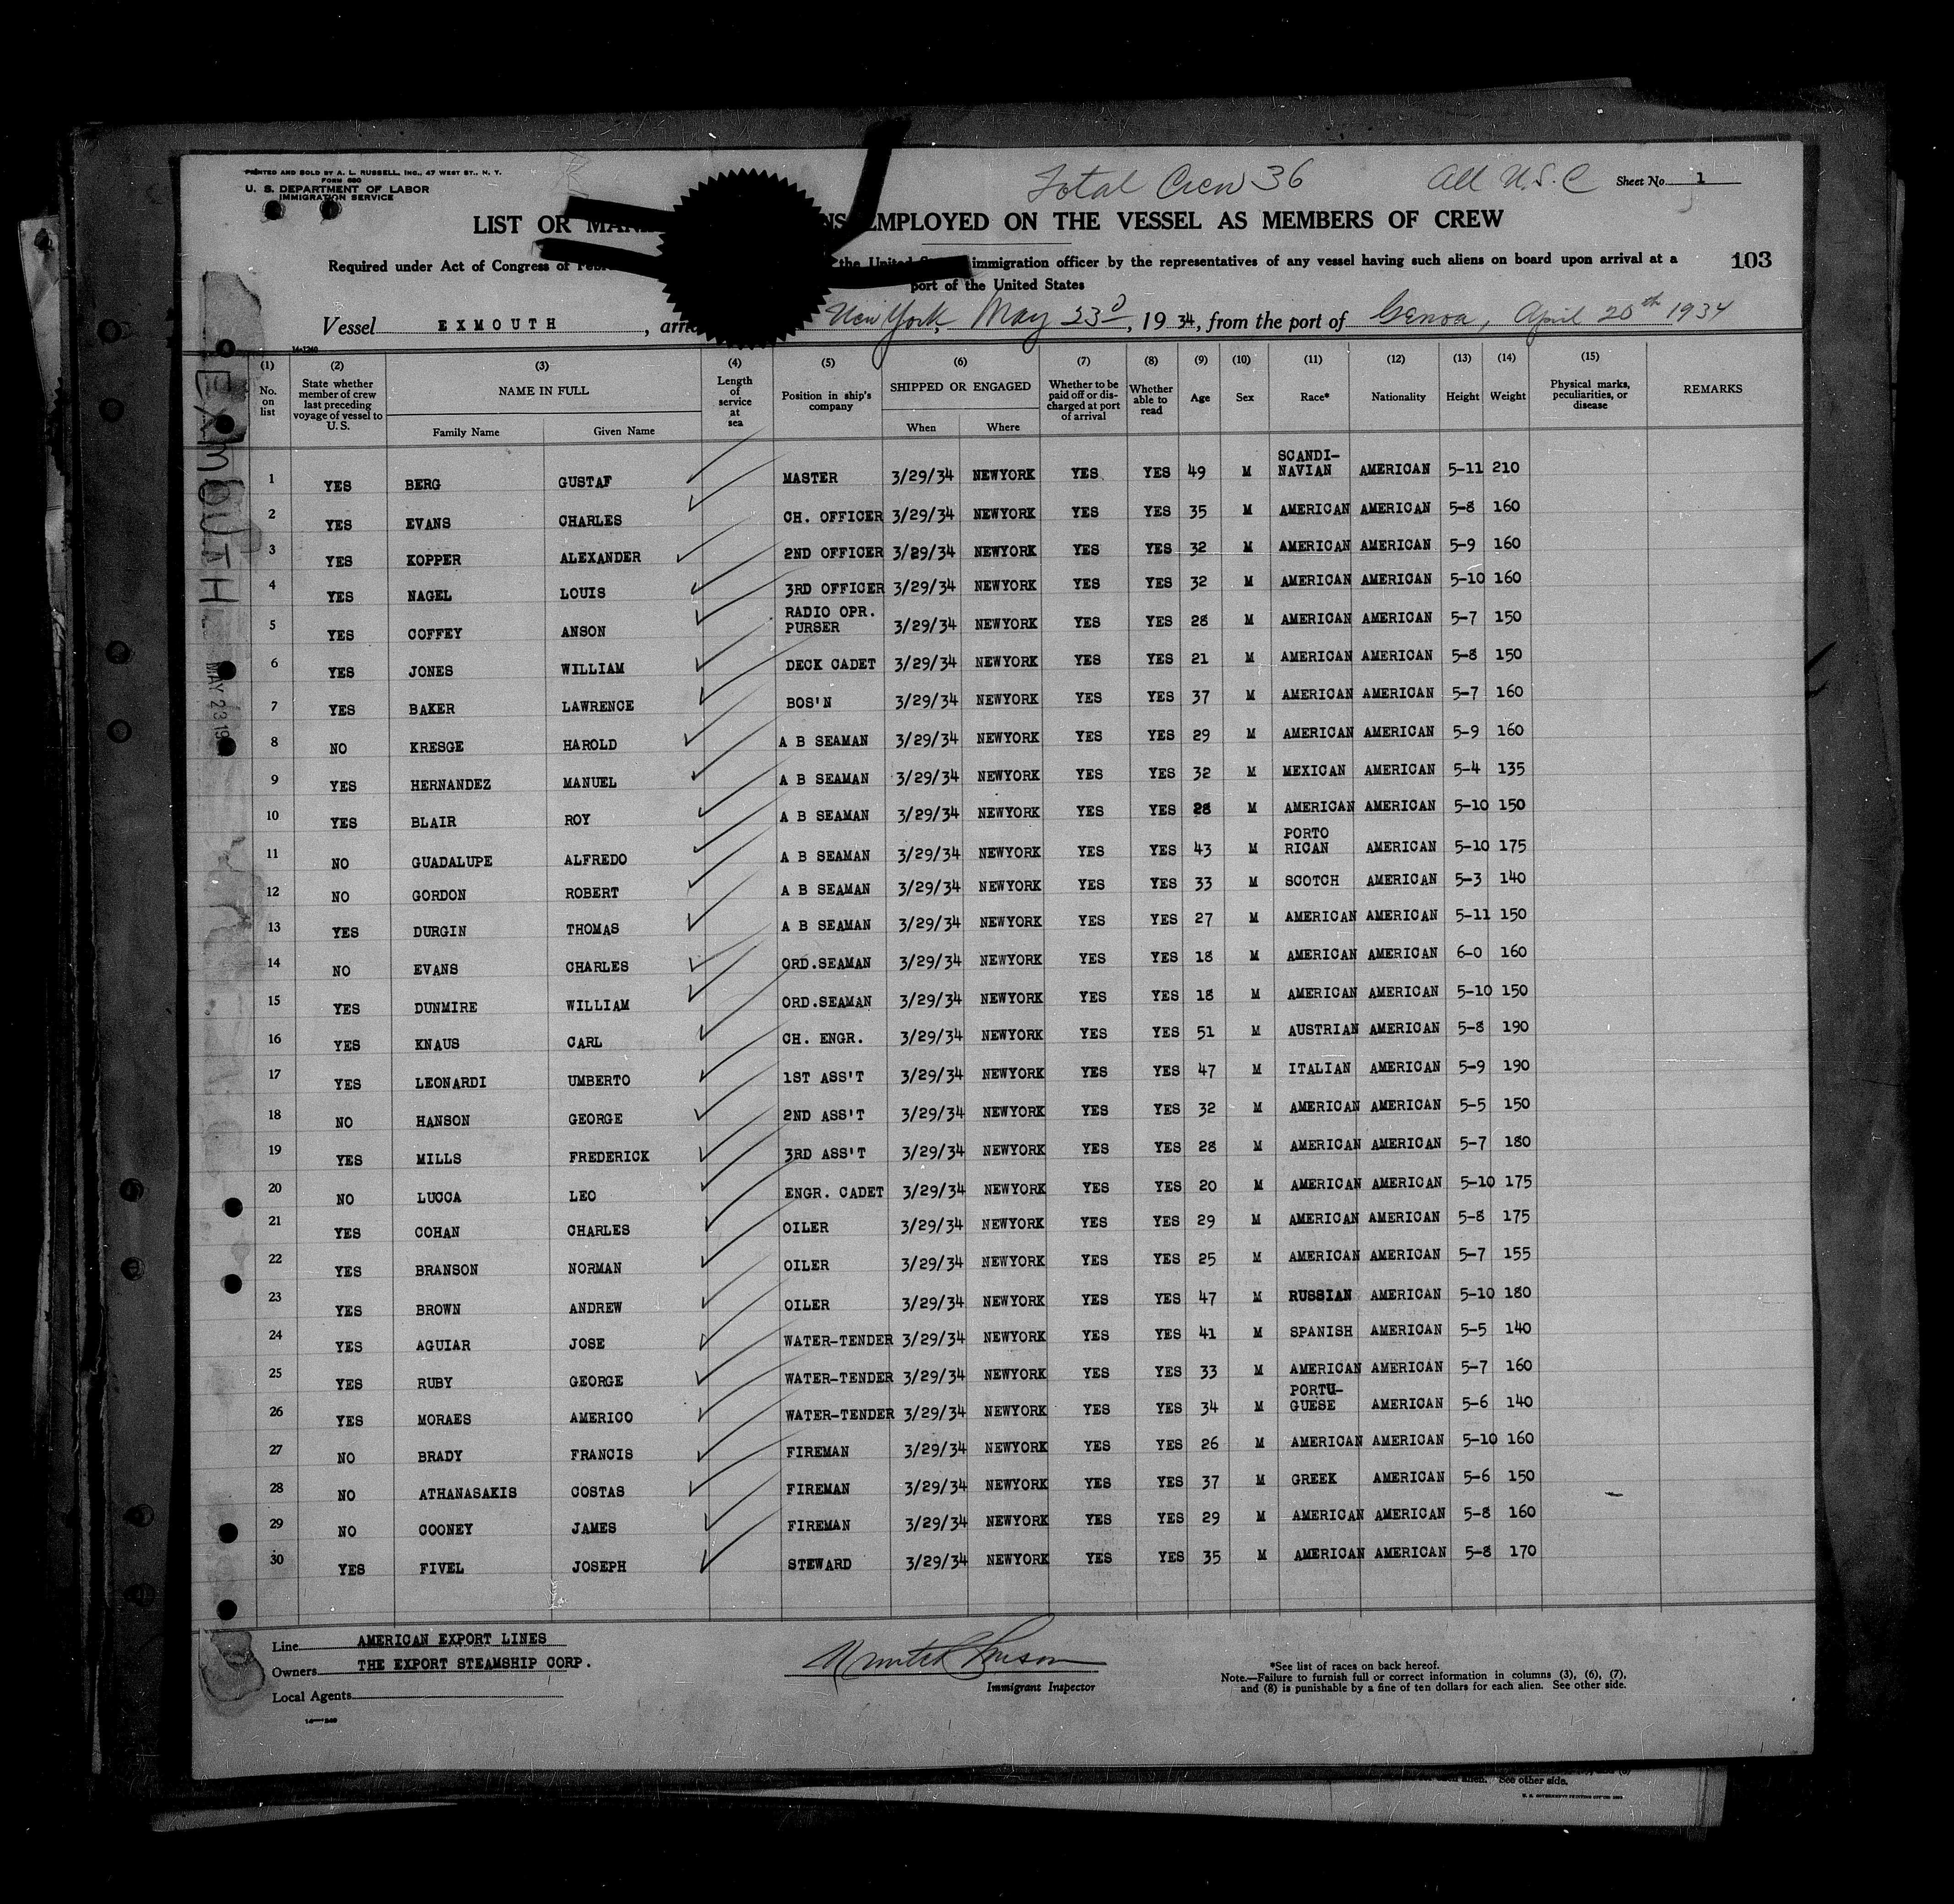 PRINTED AND SOLD BY A. L. RUSSELL, INC., 47 WEST ST., N. Y.
FORM 680
U. S. DEPARTMENT OF LABOR
IMMIGRATION SERVICE
Total Crew 36 All U.S.C Sheet No. 1
LIST OR EMPLOYED ON THE VESSEL AS MEMBERS OF CREW
Required under Act of Congress of the United immigration officer by the representatives of any vessel having such aliens on board upon arrival at a
103
port of the United States
Vessel EXMOUTH, New York, May 23d, 1934, from the port of Genoa, April 20th 1934
14-1240
EXMOUTH
MAY 23 19
(1) (2) (3) (4) (5) (6) (7) (8) (9) (10) (11) (12) (13) (14) (15)
No. on list State whether member of crew last preceding voyage of vessel to U. S. NAME IN FULL Length of service at sea Position in ship's company SHIPPED OR ENGAGED Whether to be paid off or discharged at port of arrival Whether able to read Age Sex Race* Nationality Height Weight Physical marks, peculiarities, or disease REMARKS
Family Name Given Name When Where
1 YES BERG GUSTAF MASTER 3/29/34 NEWYORK YES YES 49 M SCANDI-NAVIAN AMERICAN 5-11 210
2 YES EVANS CHARLES CH. OFFICER 3/29/34 NEWYORK YES YES 35 M AMERICAN AMERICAN 5-8 160
3 YES KOPPER ALEXANDER 2ND OFFICER 3/29/34 NEWYORK YES YES 32 M AMERICAN AMERICAN 5-9 160
4 YES NAGEL LOUIS 3RD OFFICER 3/29/34 NEWYORK YES YES 32 M AMERICAN AMERICAN 5-10 160
5 YES COFFEY ANSON RADIO OPR. PURSER 3/29/34 NEWYORK YES YES 28 M AMERICAN AMERICAN 5-7 150
6 YES JONES WILLIAM DECK CADET 3/29/34 NEWYORK YES YES 21 M AMERICAN AMERICAN 5-8 150
7 YES BAKER LAWRENCE BOS'N 3/29/34 NEWYORK YES YES 37 M AMERICAN AMERICAN 5-7 160
8 NO KRESGE HAROLD A B SEAMAN 3/29/34 NEWYORK YES YES 29 M AMERICAN AMERICAN 5-9 160
9 YES HERNANDEZ MANUEL A B SEAMAN 3/29/34 NEWYORK YES YES 32 M MEXICAN AMERICAN 5-4 135
10 YES BLAIR ROY A B SEAMAN 3/29/34 NEWYORK YES YES 28 M AMERICAN AMERICAN 5-10 150
11 NO GUADALUPE ALFREDO A B SEAMAN 3/29/34 NEWYORK YES YES 43 M PORTO RICAN AMERICAN 5-10 175
12 NO GORDON ROBERT A B SEAMAN 3/29/34 NEWYORK YES YES 33 M SCOTCH AMERICAN 5-3 140
13 YES DURGIN THOMAS A B SEAMAN 3/29/34 NEWYORK YES YES 27 M AMERICAN AMERICAN 5-11 150
14 NO EVANS CHARLES ORD.SEAMAN 3/29/34 NEWYORK YES YES 18 M AMERICAN AMERICAN 6-0 160
15 YES DUNMIRE WILLIAM ORD.SEAMAN 3/29/34 NEWYORK YES YES 18 M AMERICAN AMERICAN 5-10 150
16 YES KNAUS CARL CH. ENGR. 3/29/34 NEWYORK YES YES 51 M AUSTRIAN AMERICAN 5-8 190
17 YES LEONARDI UMBERTO 1ST ASS'T 3/29/34 NEWYORK YES YES 47 M ITALIAN AMERICAN 5-9 190
18 NO HANSON GEORGE 2ND ASS'T 3/29/34 NEWYORK YES YES 32 M AMERICAN AMERICAN 5-5 150
19 YES MILLS FREDERICK 3RD ASS'T 3/29/34 NEWYORK YES YES 28 M AMERICAN AMERICAN 5-7 180
20 NO LUCCA LEO ENGR. CADET 3/29/34 NEWYORK YES YES 20 M AMERICAN AMERICAN 5-10 175
21 YES COHAN CHARLES OILER 3/29/34 NEWYORK YES YES 29 M AMERICAN AMERICAN 5-8 175
22 YES BRANSON NORMAN OILER 3/29/34 NEWYORK YES YES 25 M AMERICAN AMERICAN 5-7 155
23 YES BROWN ANDREW OILER 3/29/34 NEWYORK YES YES 47 M RUSSIAN AMERICAN 5-10 180
24 YES AGUIAR JOSE WATER-TENDER 3/29/34 NEWYORK YES YES 41 M SPANISH AMERICAN 5-5 140
25 YES RUBY GEORGE WATER-TENDER 3/29/34 NEWYORK YES YES 33 M AMERICAN AMERICAN 5-7 160
26 YES MORAES AMERICO WATER-TENDER 3/29/34 NEWYORK YES YES 34 M PORTU-GUESE AMERICAN 5-6 140
27 NO BRADY FRANCIS FIREMAN 3/29/34 NEWYORK YES YES 26 M AMERICAN AMERICAN 5-10 160
28 NO ATHANASAKIS COSTAS FIREMAN 3/29/34 NEWYORK YES YES 37 M GREEK AMERICAN 5-6 150
29 NO COONEY JAMES FIREMAN 3/29/34 NEWYORK YES YES 29 M AMERICAN AMERICAN 5-8 160
30 YES FIVEL JOSEPH STEWARD 3/29/34 NEWYORK YES YES 35 M AMERICAN AMERICAN 5-8 170
Line AMERICAN EXPORT LINES
Owners THE EXPORT STEAMSHIP CORP.
Local Agents
Immigrant Inspector
*See list of races on back hereof.
Note.—Failure to furnish full or correct information in columns (3), (6), (7),
and (8) is punishable by a fine of ten dollars for each alien. See other side.
See other side.